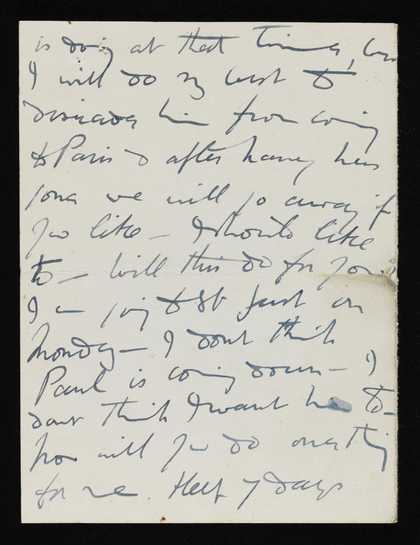 is doing at that time, but
I will do my best to
dissuade him from coming
to Paris & after having been
gone we will go away if
you like – I should like
to – Will this do for you
I am going to St Just on
Monday – I dont think
Paul is coming down – I
dont think I want him to –
Now will you do one thing
for me. Half 7 days